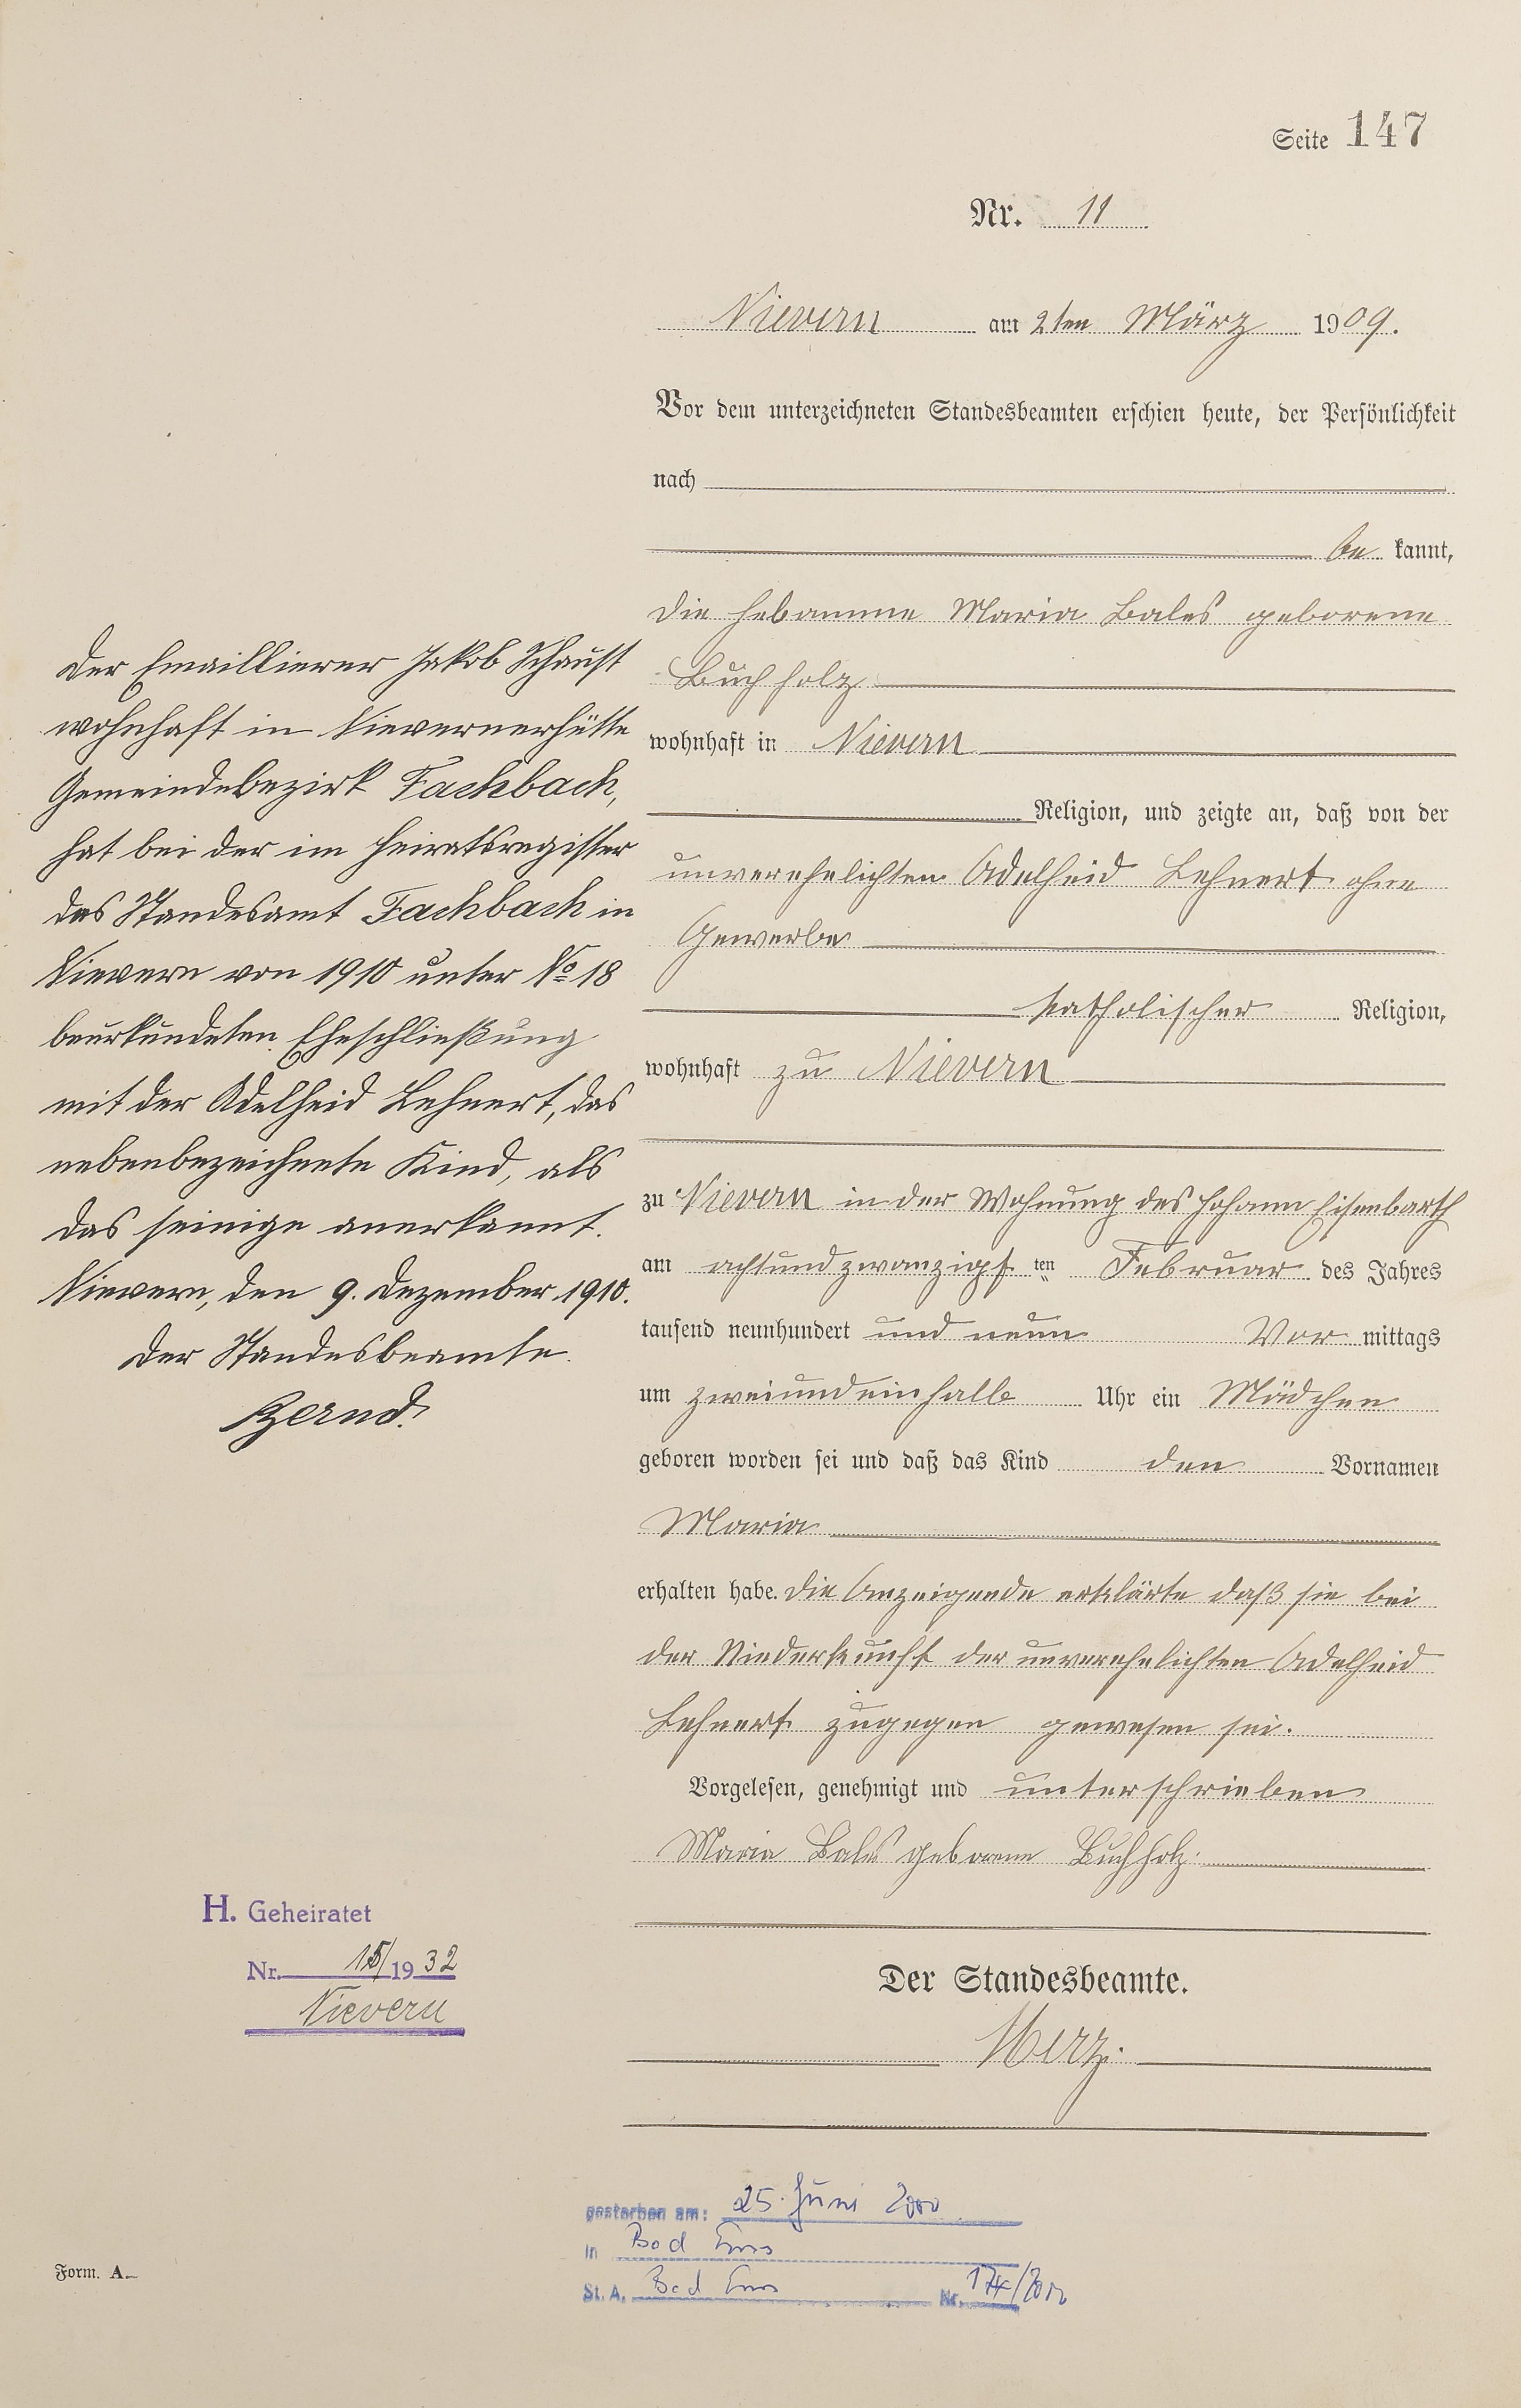 Seite 147
Nr. 11
Nievern am 2ten März 1909.
Vor dem unterzeichneten Standesbeamten erschien heute, der Persönlichkeit
nach
be kannt,
die Hebamme Maria Bales geborene
Buchholz
wohnhaft in Nievern
Religion, und zeigte an, daß von der
unverehelichten Adelheid Lehnert ohne
Gewerbe
katholischer Religion,
wohnhaft zu Nievern
zu Nievern in der Wohnung des Johann Eisenbarth
am achtundzwanzigsten Februar des Jahres
tausend neunhundert und neun Vor mittags
um zweiundeinhalb Uhr ein Mädchen
geboren worden sei und daß das Kind den Vornamen
Maria
erhalten habe. Die Anzeigende erklärte daß sie bei
der Niederkunft der unverehelichten Adelheid
Lehnert zugegen gewesen sei.
Vorgelesen, genehmigt und unterschrieben
Maria Bales geborene Buchholz.
Der Standesbeamte.
Merz.
Der Emaillierer Jakob Schaust
wohnhaft in Nievernerhütte
Gemeindebezirk Fachbach,
hat bei der im Heiratsregister
des Standesamt Fachbach in
Nievern von 1910 unter No 18
beurkundeten Eheschließung
mit der Adelheid Lehnert, das
nebenbezeichnete Kind, als
das seinige anerkannt.
Nievern, den 9. Dezember 1910.
Der Standesbeamte.
Bernd.
H. Geheiratet
Nr. 15/1932
Nievern
gestorben am: 25. Juni 2000
in Bad Ems
St. A. Bad Ems Nr. 174/2000
Form. A.